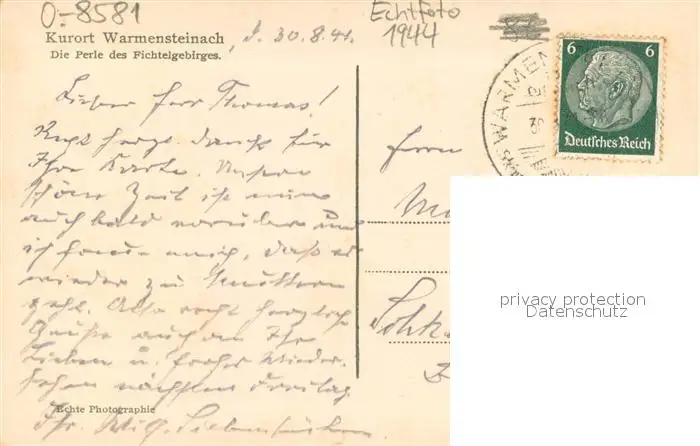 O-8581
Echtfoto
1944
Kurort Warmensteinach, d. 30.8.41.
Die Perle des Fichtelgebirges.
6 6
Deutsches Reich
WARMEN
Lieber Herr Thomas!
Recht herzl. Dank für
Ihre Karte. Unsere
schöne Zeit ist nun
auch bald vorüber und
ich freue mich, daß es
wieder zu Muttern
geht. Also recht herzliche
Grüße auch an Ihre
Lieben u. frohes Wieder-
sehen nächsten Freitag
Ihr
Echte Photographie
Herrn
privacy protection
Datenschutz